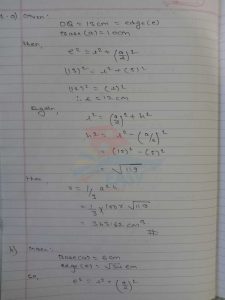 1. a) Given:
OQ = 13cm = edge(e)
Base(a) = 10cm
then,
e² = l² + (a/2)²
(13)² = l² + (5)²
(12)² = (l)²
∴ l = 12cm
Again,
l² = (a/2)² + h²
h² = l² - (a/2)²
= (12)² - (5)²
= √119
then
v = 1/3 a² h
= 1/3 × 100 × √119
= 363.62 cm³
b) Given:
Base(a) = 6cm
edge(e) = √34 cm
So,
e² = l² + (a/2)²